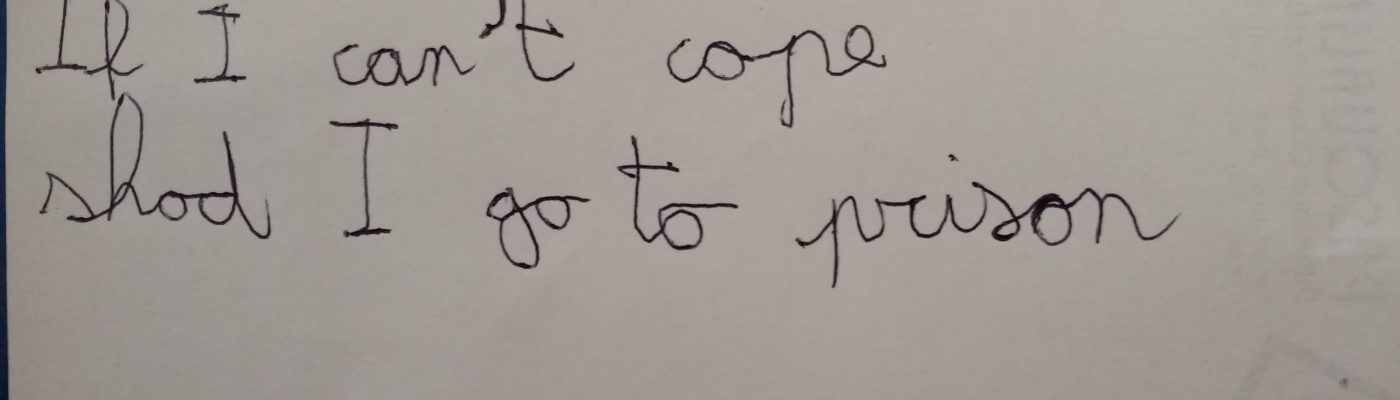 If I can't cope
shod I go to prison